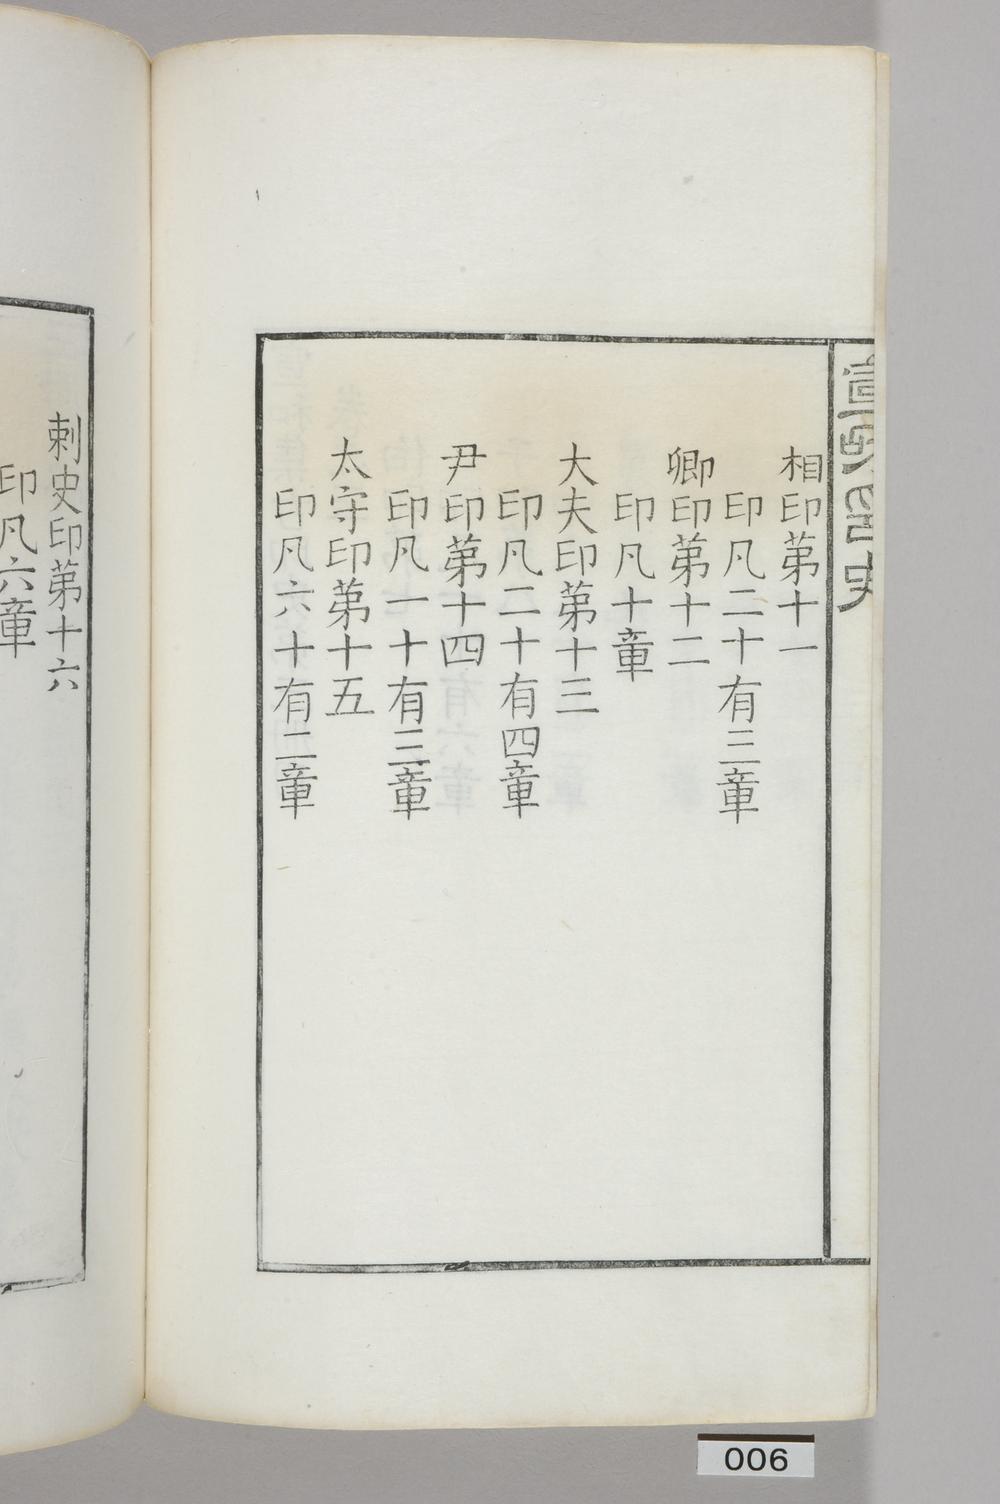 相印第十一
印凡二十有三章
卿印第十二
印凡十章
大夫印第十三
印凡二十有四章
尹印第十四
印凡一十有三章
太守印第十五
印凡六十有二章
刺史印第十六
印凡六章
006